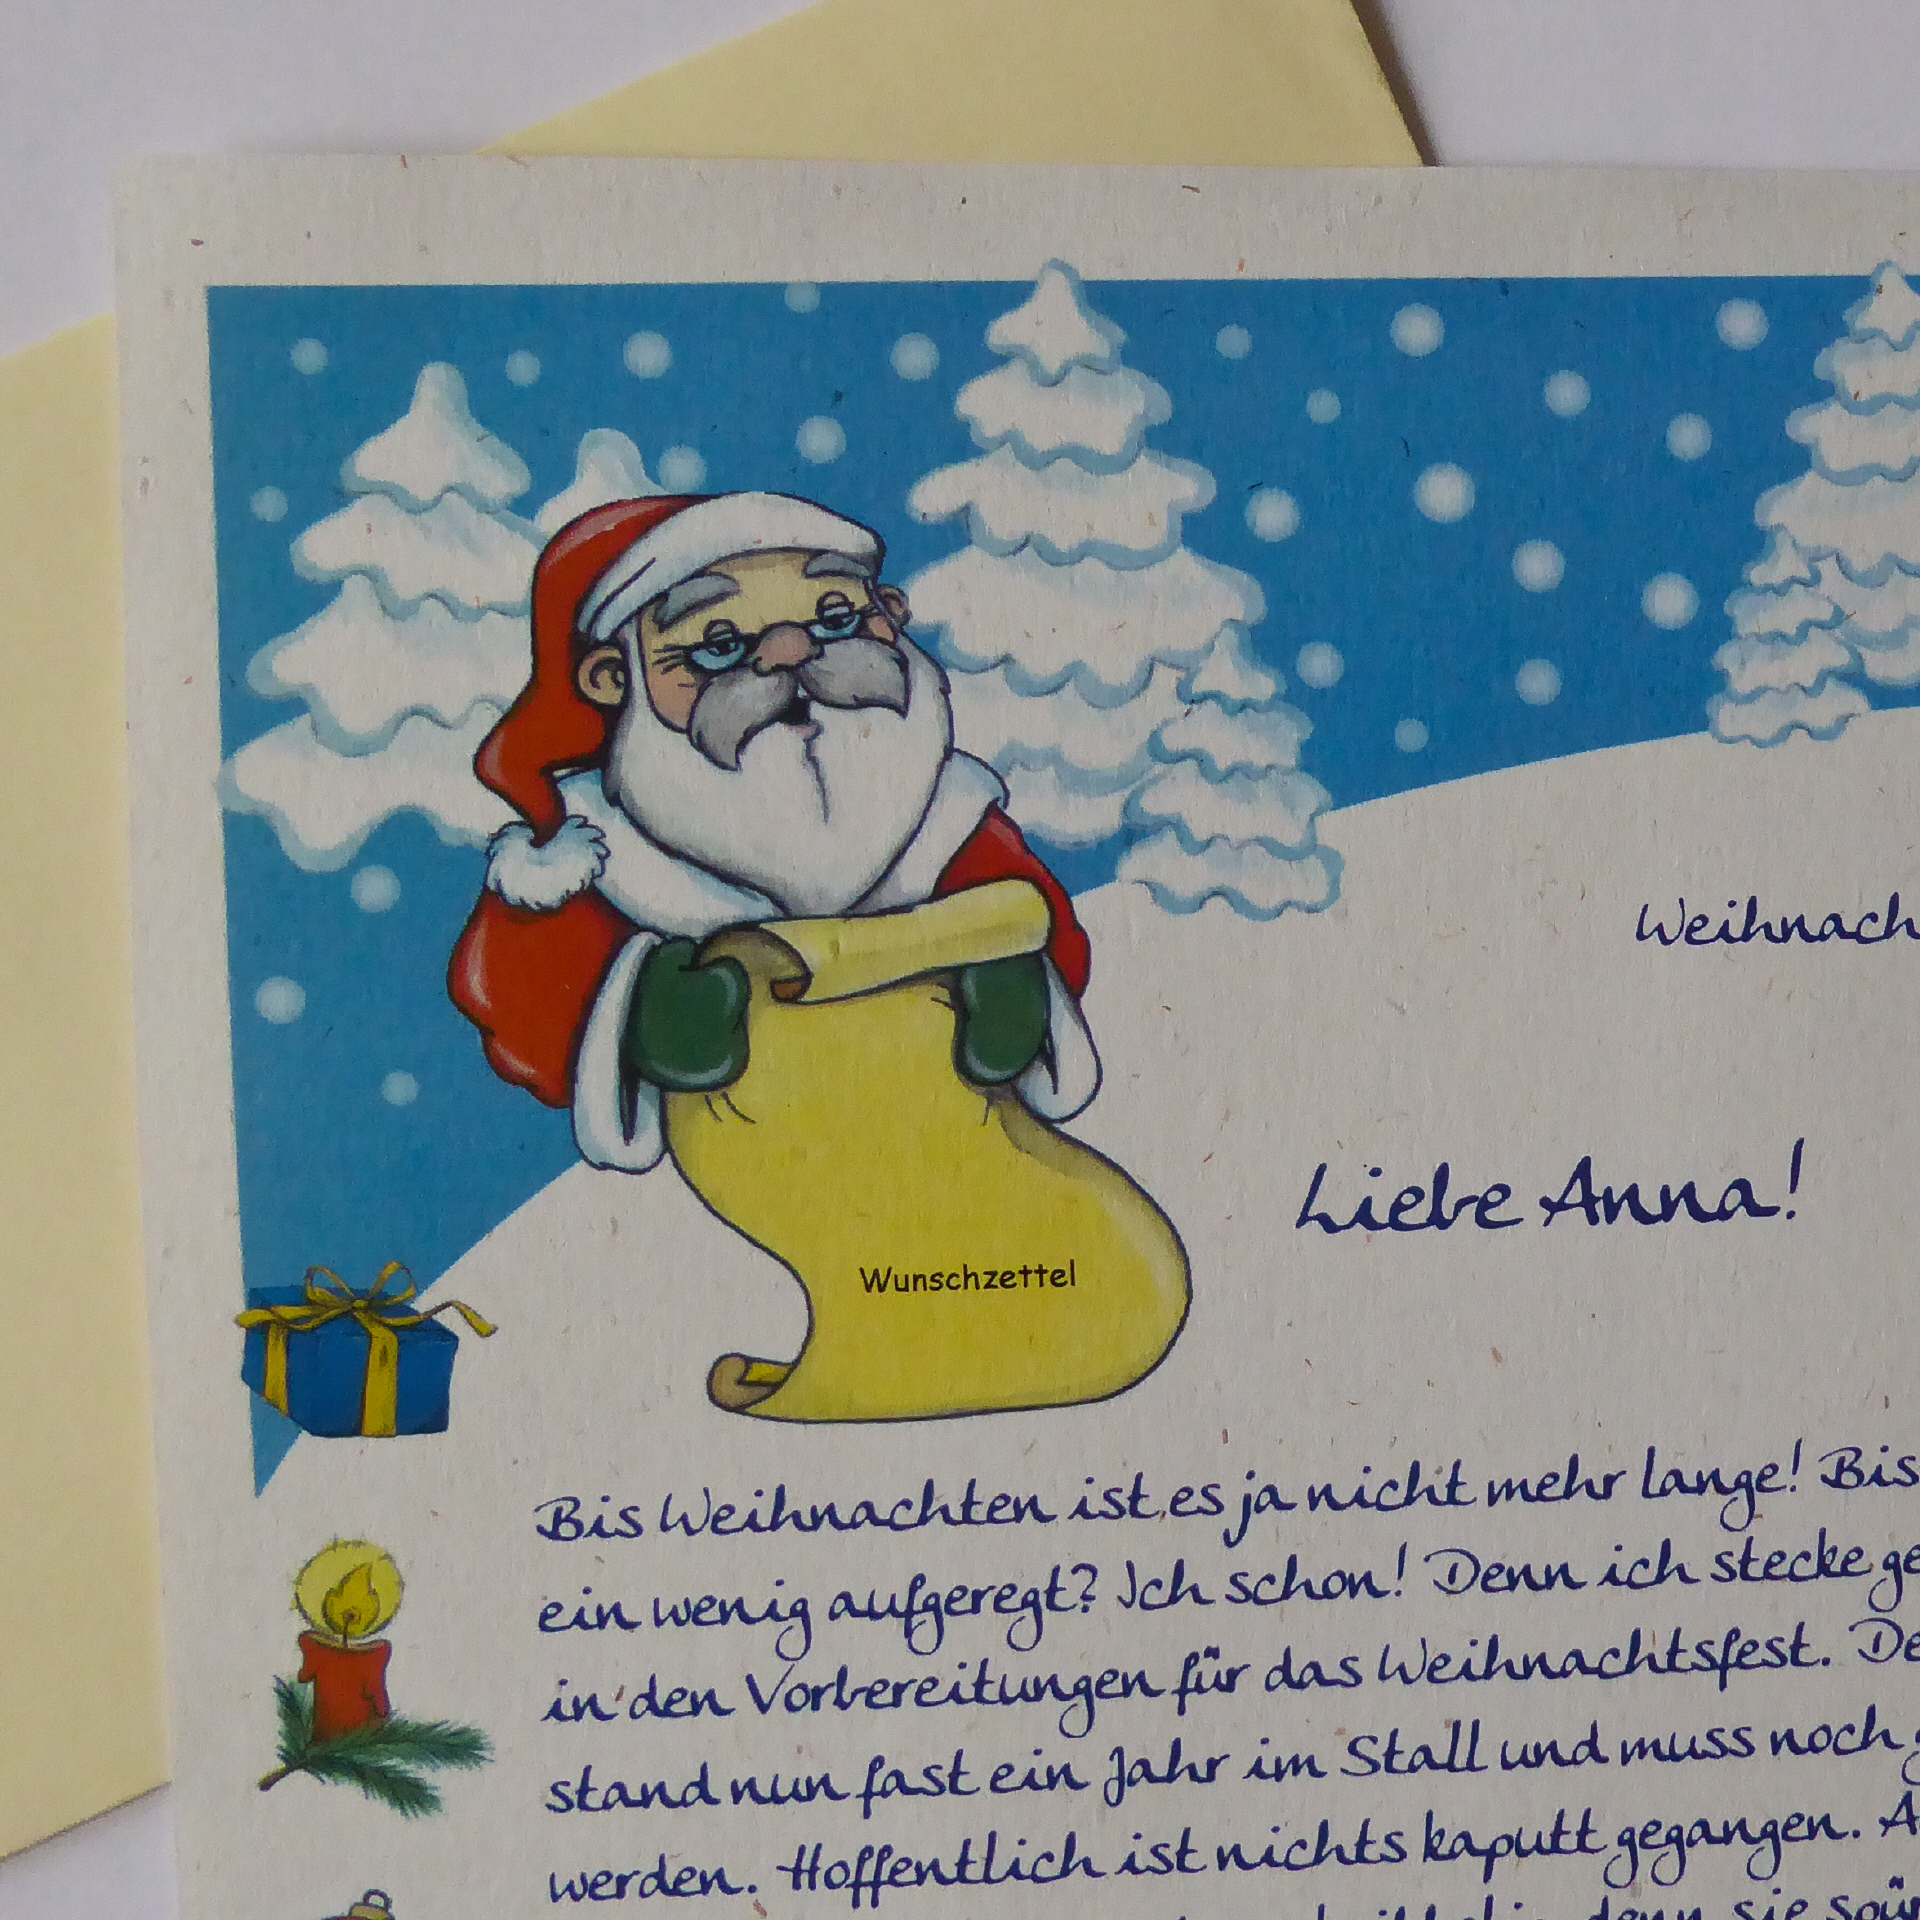 Weihnach
Liebe Anna!
Wunschzettel
Bis Weihnachten ist es ja nicht mehr lange! Bis
ein wenig aufgeregt? Ich schon! Denn ich stecke ge
in den Vorbereitungen für das Weihnachtsfest. De
stand nun fast ein Jahr im Stall und muss noch g
werden. Hoffentlich ist nichts kaputt gegangen. A
denn sie spür